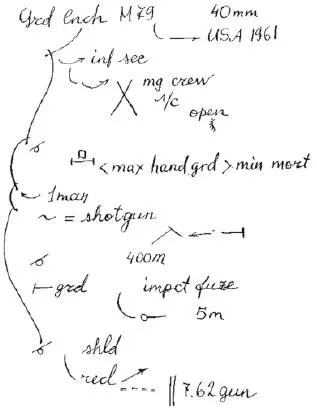 Grd lnch M79 40mm
USA 1961
inf sec
mg crew
s/c
open
< max hand.grd > min mort
1man
~ = shotgun
400m
grd impct fuze
5m
shld
red || 7.62 gun